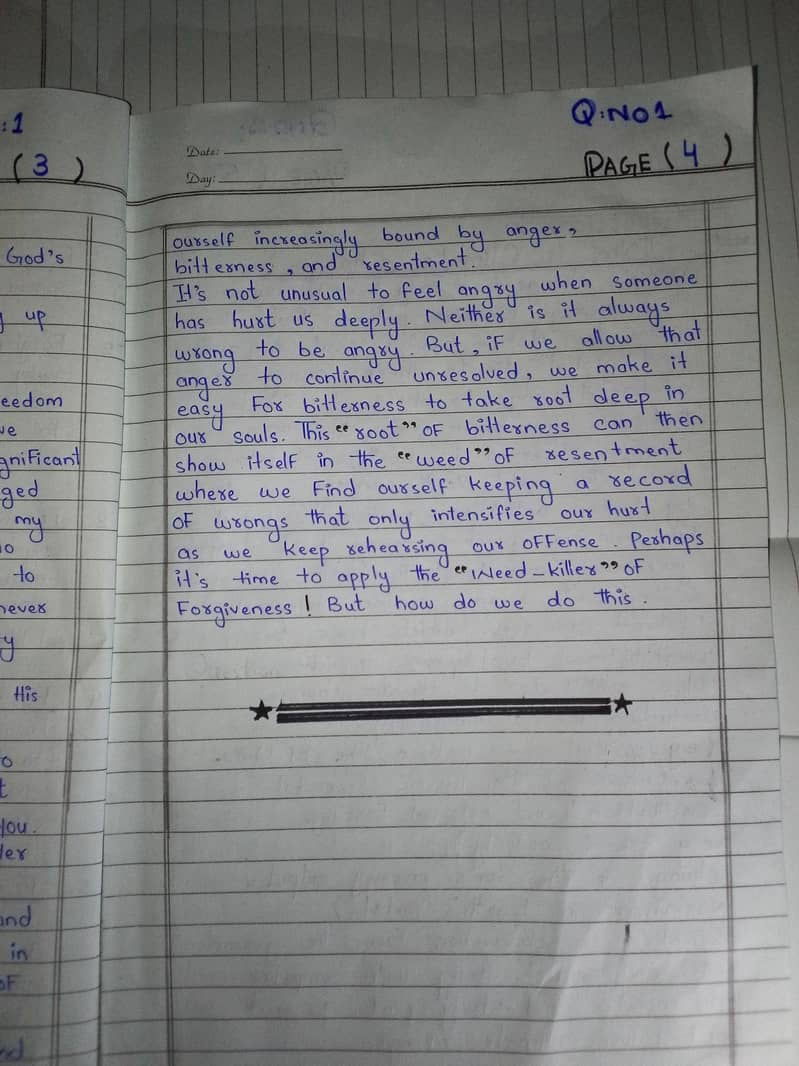 :1
(3)
God's
up
eedom
ve
gnificant
ged
my
to
never
y
His
o
t
you.
ler
and
in
of
nd
Q:NO1
Date:
Day:
PAGE (4)
ourself increasingly bound by anger,
bitterness, and resentment.
It's not unusual to feel angry when someone
has hurt us deeply. Neither is it always
wrong to be angry. But, if we allow that
anger to continue unresolved, we make it
easy For bitterness to take root deep in
our souls. This "root" OF bitterness can then
show itself in the "weed" OF resentment
where we Find ourself keeping a record
OF wrongs that only intensifies our hurt
as we keep rehearsing our OFFense. Perhaps
it's time to apply the "Weed-killer" OF
Forgiveness! But how do we do this.